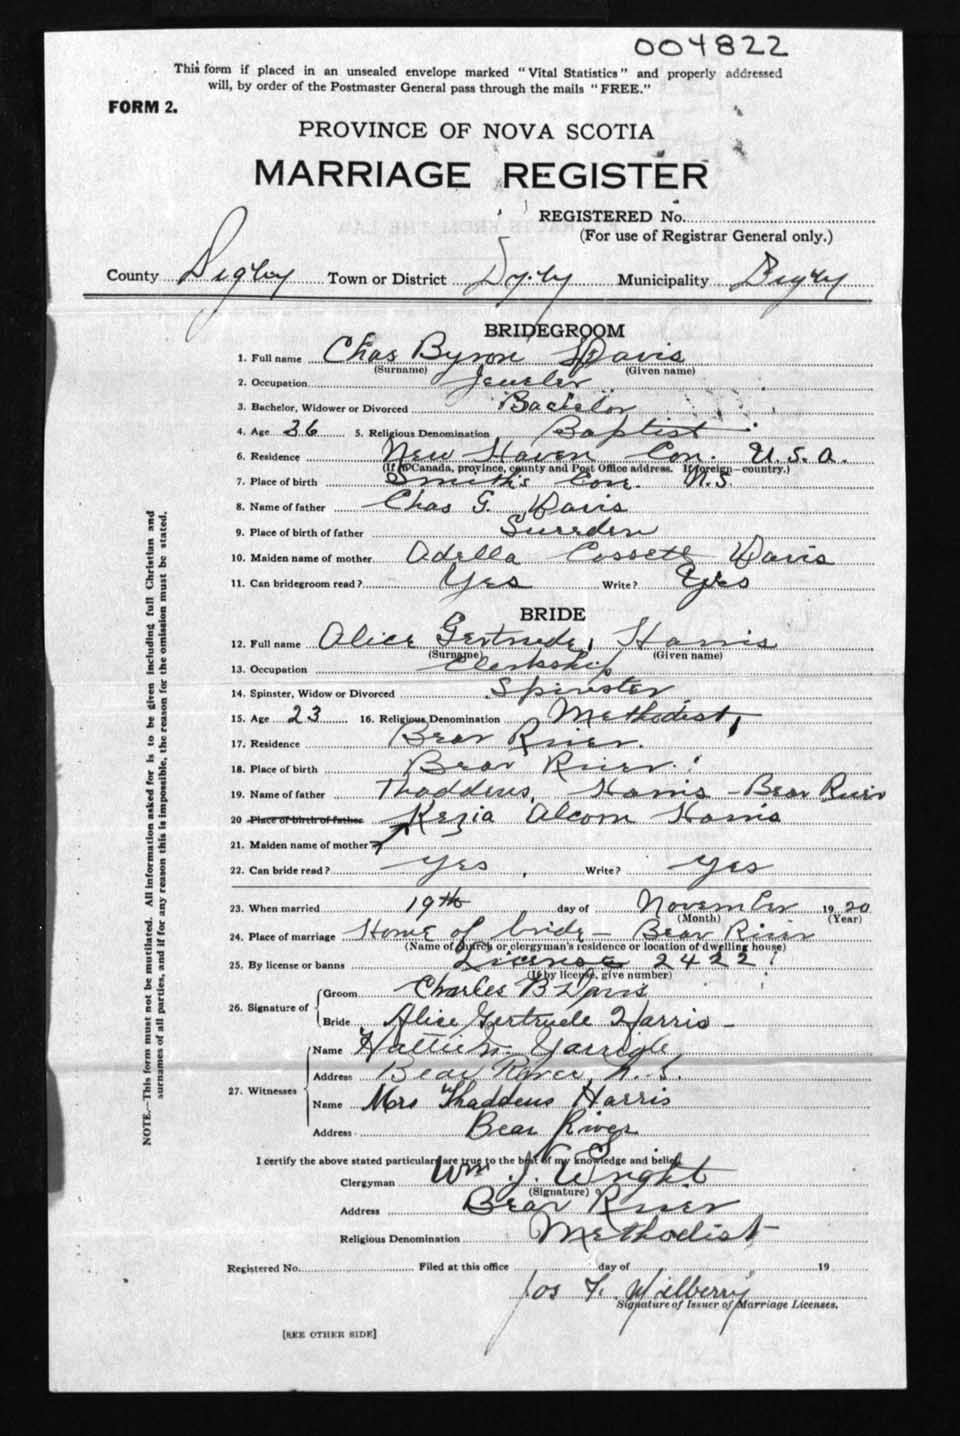 004822
This form if placed in an unsealed envelope marked "Vital Statistics" and properly addressed
will, by order of the Postmaster General pass through the mails "FREE."
FORM 2.
PROVINCE OF NOVA SCOTIA
MARRIAGE REGISTER
REGISTERED No.
(For use of Registrar General only.)
County Digby Town or District Digby Municipality Digby
BRIDEGROOM
1. Full name Chas Byron Davis
(Surname) (Given name)
2. Occupation Jeweler
3. Bachelor, Widower or Divorced Bachelor
4. Age 36 5. Religious Denomination Baptist
6. Residence New Haven Con. U.S.A.
(If in Canada, province, county and Post Office address. If foreign—country.)
7. Place of birth Smith's Cove N.S.
8. Name of father Chas G. Davis
9. Place of birth of father Sweeden
10. Maiden name of mother Adella Cossett Davis
11. Can bridegroom read? Yes Write? Yes
BRIDE
12. Full name Alice Gertrude Harris
(Surname) (Given name)
13. Occupation Clerkship
14. Spinster, Widow or Divorced Spinster
15. Age 23 16. Religious Denomination Methodist
17. Residence Bear River.
18. Place of birth Bear River.
19. Name of father Thaddeus Harris - Bear River
20 Place of birth of father Kezia Alcorn Harris
21. Maiden name of mother
22. Can bride read? Yes Write? Yes
23. When married 19th day of November 1920
(Month) (Year)
24. Place of marriage Home of bride - Bear River
(Name of church or clergyman's residence or location of dwelling house)
25. By license or banns License 2422
(If by license, give number)
26. Signature of Groom Charles B Davis
Bride Alice Gertrude Harris
27. Witnesses Name Hattie
Address Bear River, N.S.
Name Mrs Thaddeus Harris
Address Bear River
I certify the above stated particulars are true to the best of my knowledge and belief.
Clergyman Wm J. Wright
(Signature)
Address Bear River
Religious Denomination Methodist
Registered No. Filed at this office day of 19
Jos F.
Signature of Issuer of Marriage Licenses.
[SEE OTHER SIDE]
NOTE.—This form must not be mutilated. All information asked for is to be given including full Christian and
surnames of all parties, and if for any reason this is impossible, the reason for the omission must be stated.